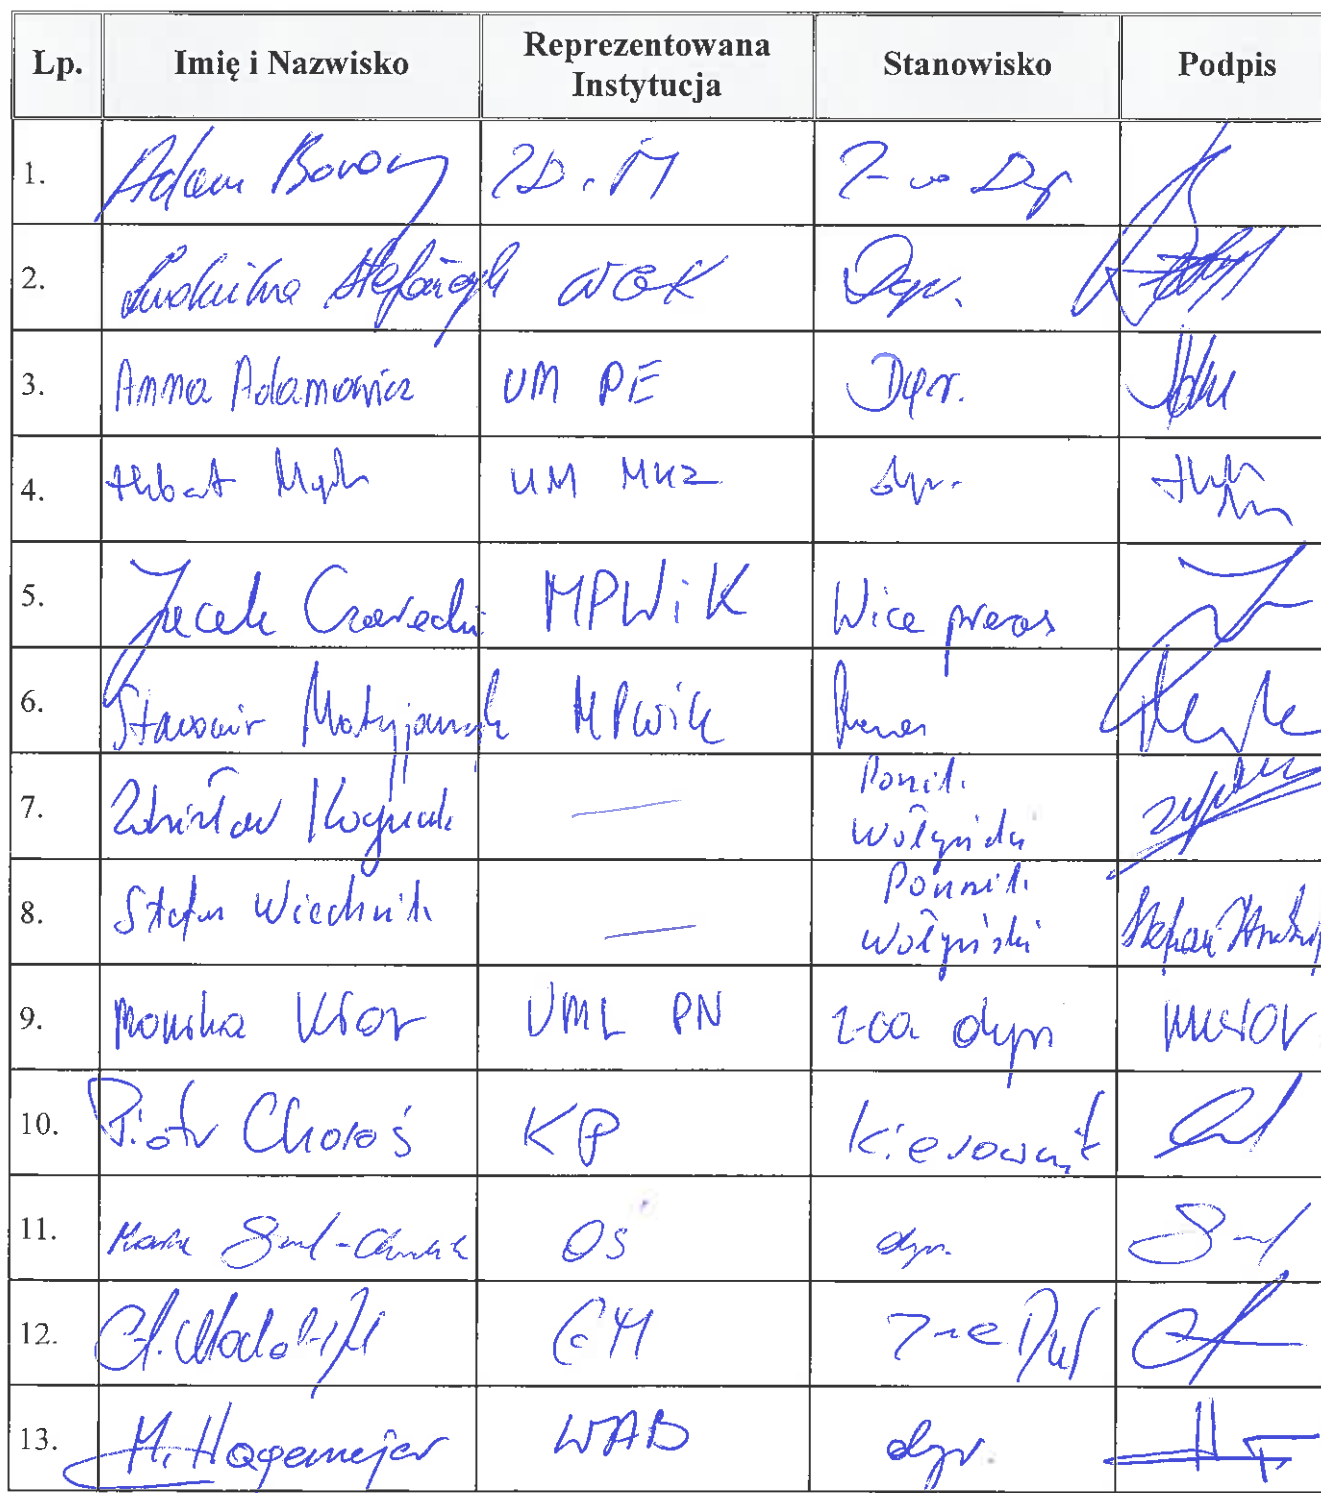 Lp. Imię i Nazwisko Reprezentowana Instytucja Stanowisko Podpis
1. Adam Borowy ZD.M Z-ca Dyr
2. Stefańczyk WGK Dyr.
3. Anna Adamowicz UM PE Dyr.
4. Hubert Mącik UM MKZ dyr.
5. Jacek Czarecki MPWiK Wice prezes
6. Sławomir Matyjaszczyk MPWiK Prezes
7. Zdzisław Koguciuk — Pomnik Wołyński
8. Stefan Wiechnik — Pomnik Wołyński
9. Monika Kłos UML PN z-ca dyr
10. Piotr Choroś KP Kierownik
11. OS dyr.
12. GM
13. M. Hagemejer WAB dyr.